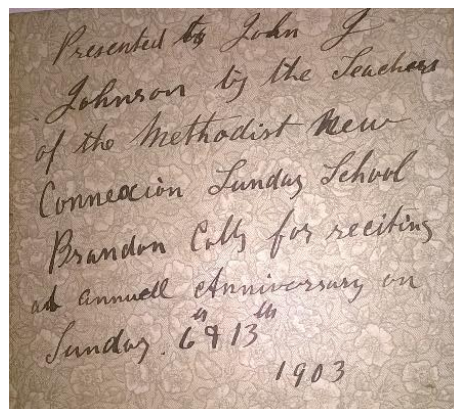 Presented to John J
Johnson by the Teachers
of the Methodist New
Connexion Sunday School
Brandon Colly for reciting
at annuell Anniversary on
Sunday. 6th & 13th
1903